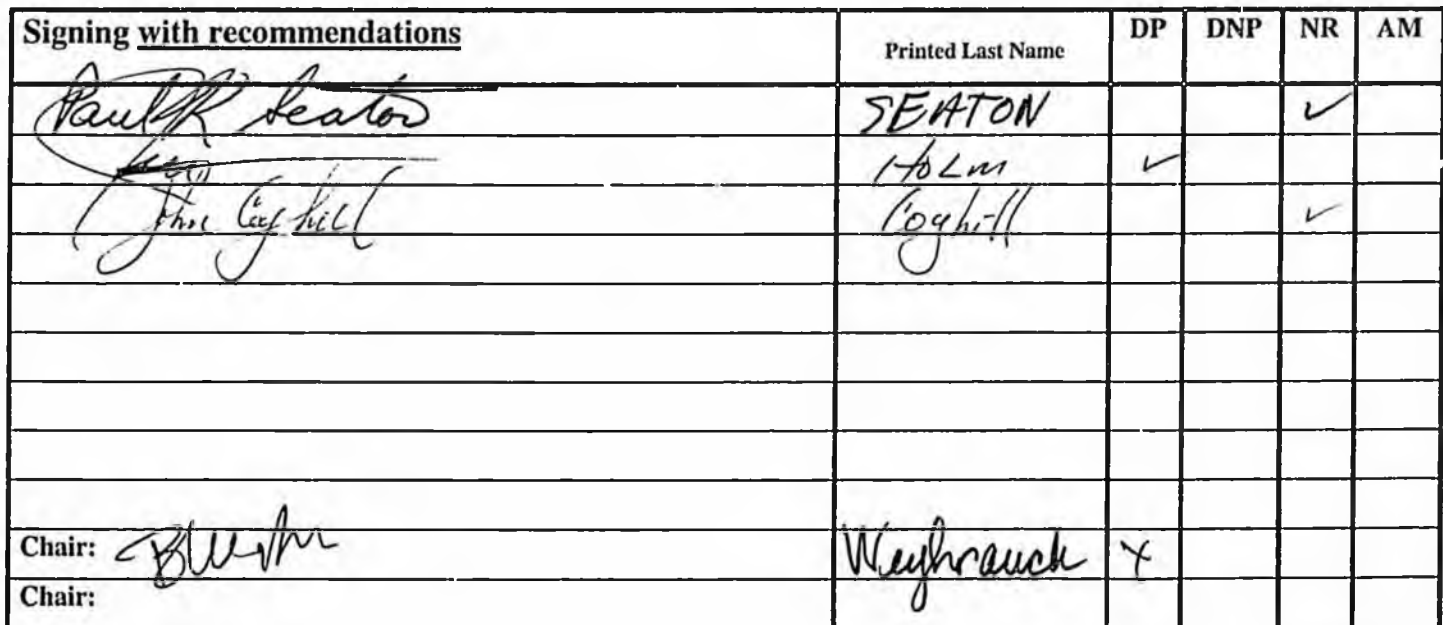 Signing with recommendations Printed Last Name DP DNP NR AM
Paul R Seaton SEATON ✓
HOLM ✓
John Coghill Coghill ✓
Chair: Weyhrauch X
Chair: